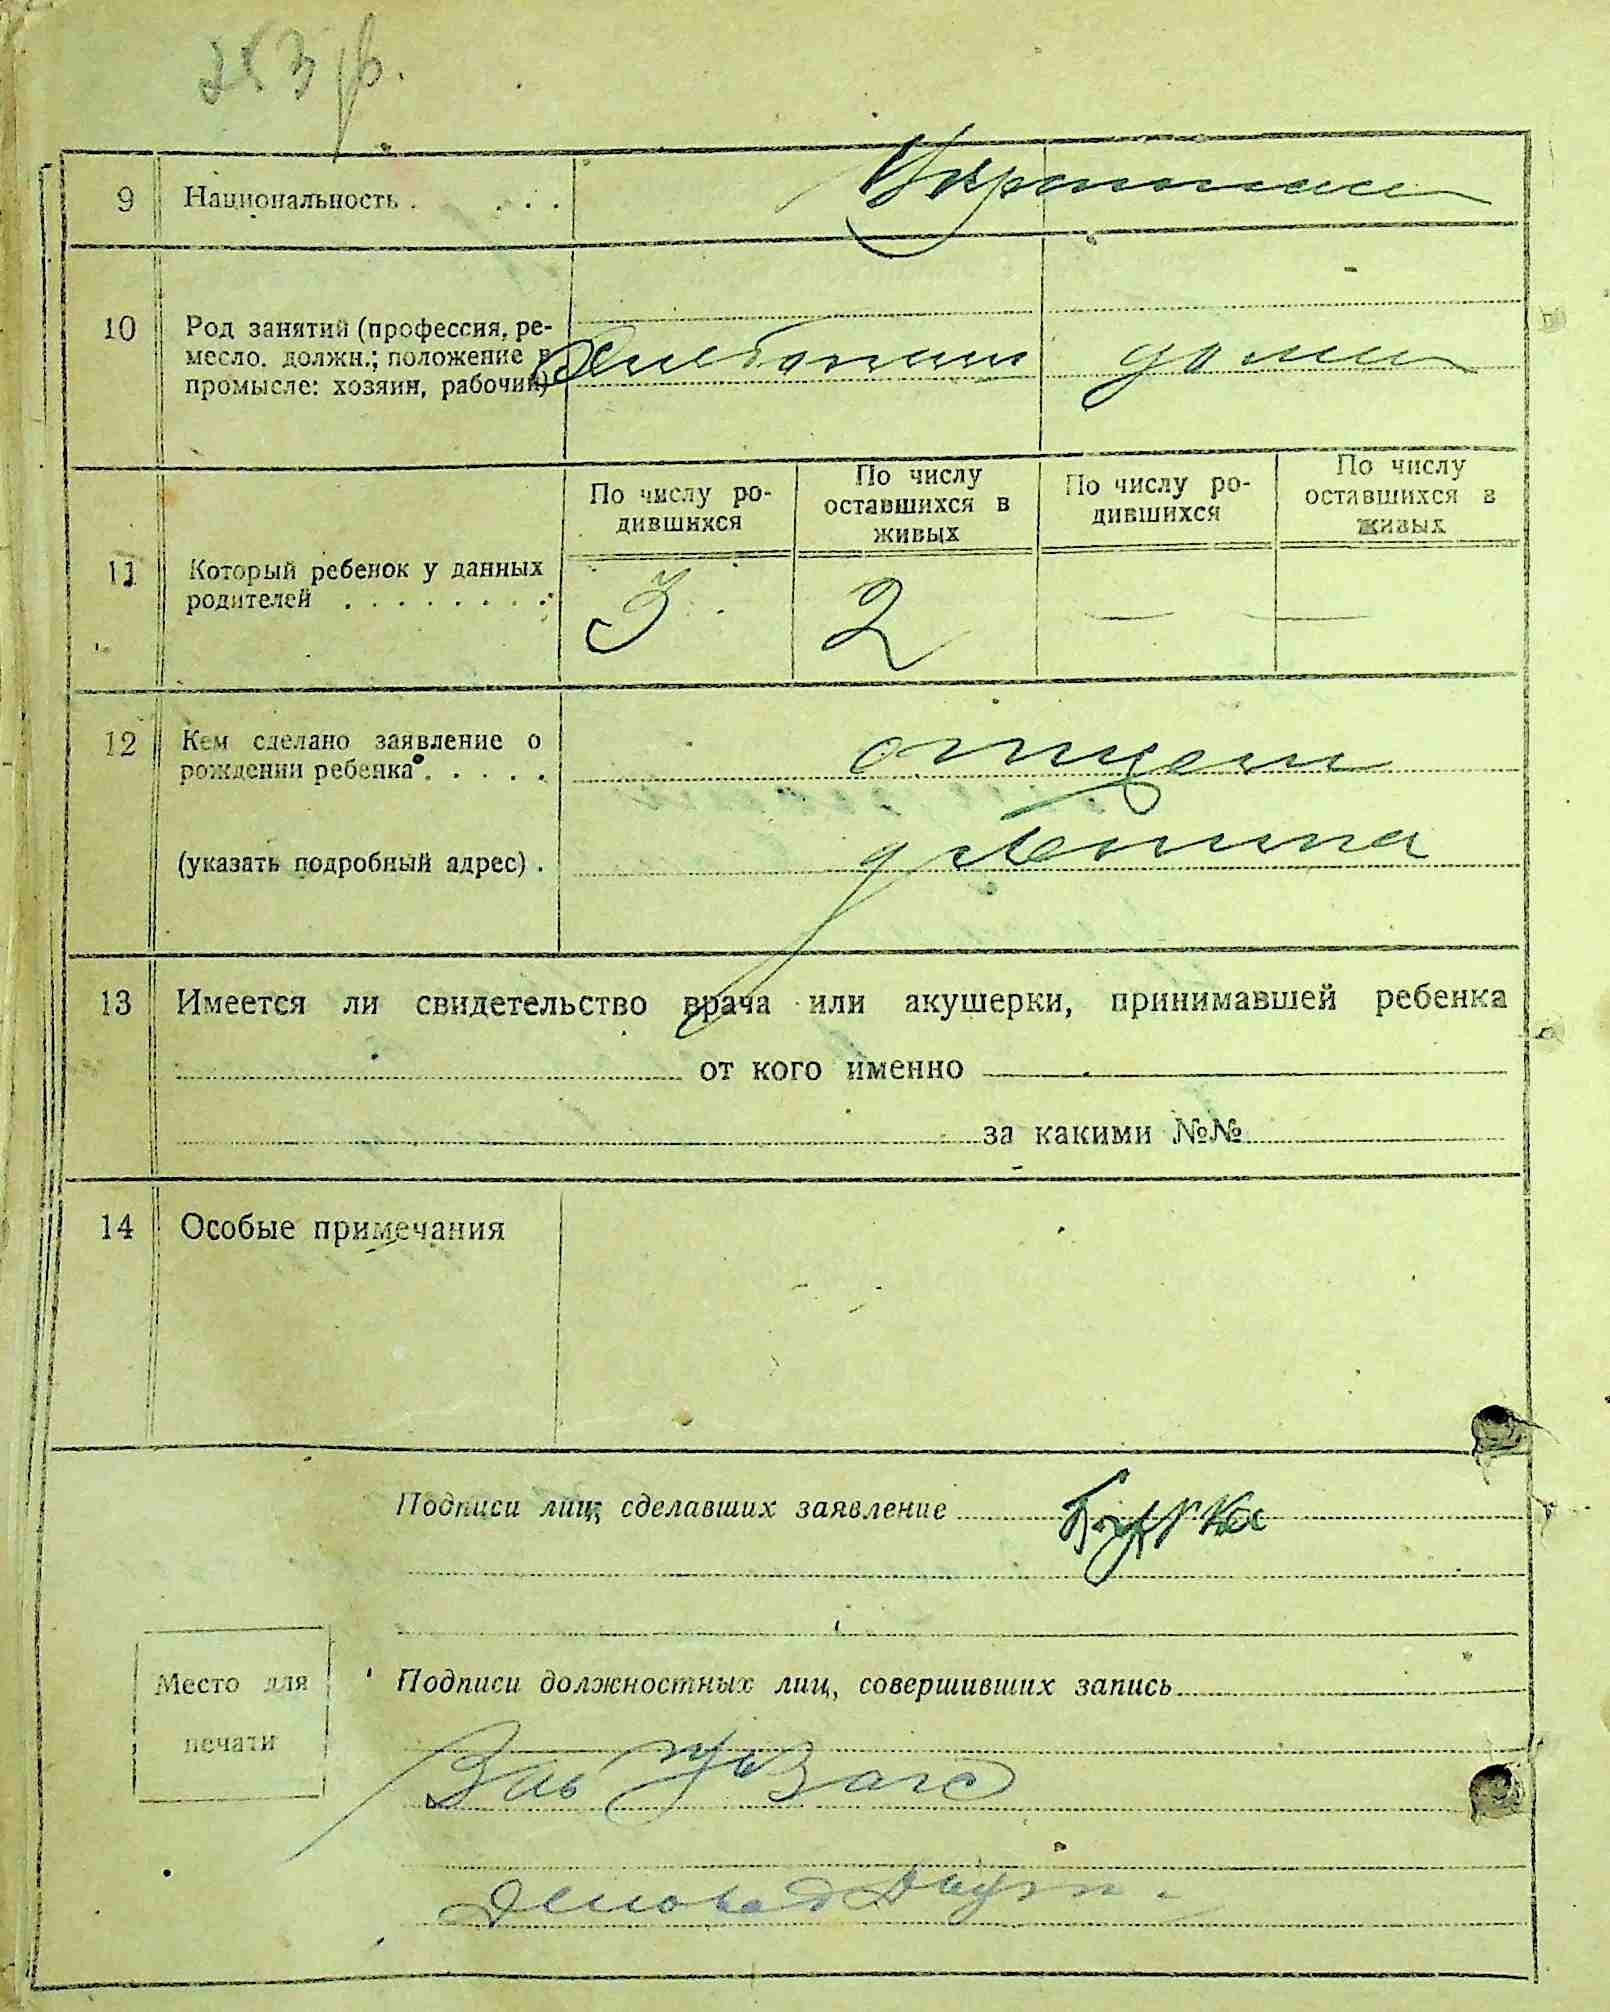 9 Национальность . . . . Украинцы
10 Род занятий (профессия, ре-
месло, должн.; положение в
промысле: хозяин, рабочий)
Хлебопаш дома
По числу ро-
дившихся
По числу
оставшихся в
живых
По числу ро-
дившихся
По числу
оставшихся в
живых
11 Который ребенок у данных
родителей . . . . . . . .
3 2 — —
12 Кем сделано заявление о
рождении ребенка . . . . .
отцем
(указать подробный адрес) .
13 Имеется ли свидетельство врача или акушерки, принимавшей ребенка
от кого именно
за какими №№
14 Особые примечания
Подписи лиц, сделавших заявление
Место для
печати
Подписи должностных лиц, совершивших запись
Загс